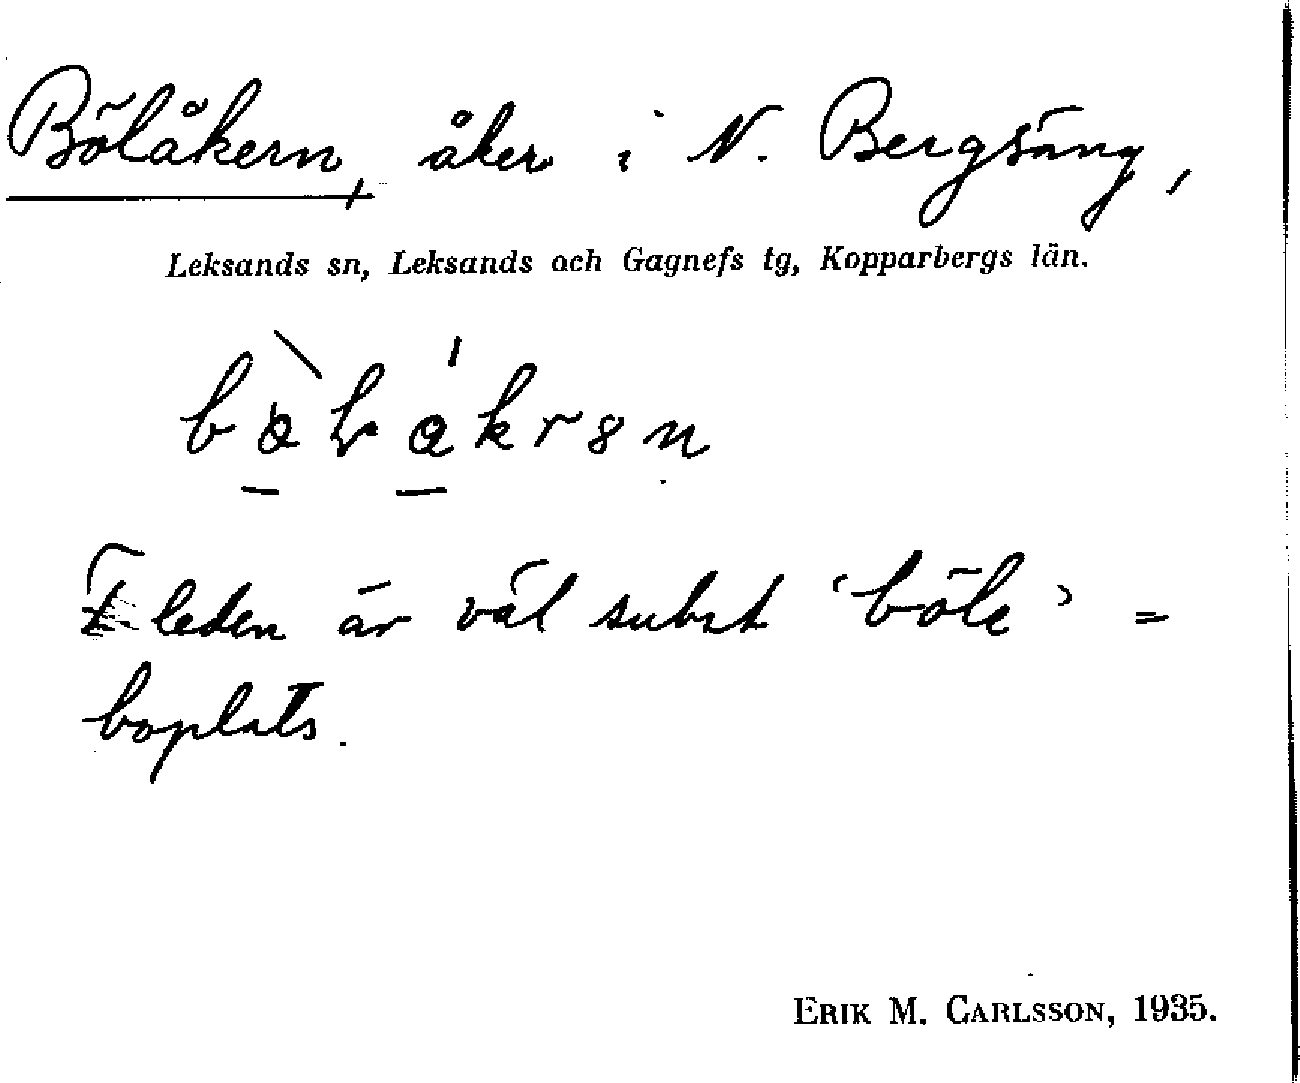 Bölåkern, åker i N. Bergsäng,
Leksands sn, Leksands och Gagnefs tg, Kopparbergs län.
leden är väl subst 'böle' =
boplats.
ERIK M. CARLSSON, 1935.